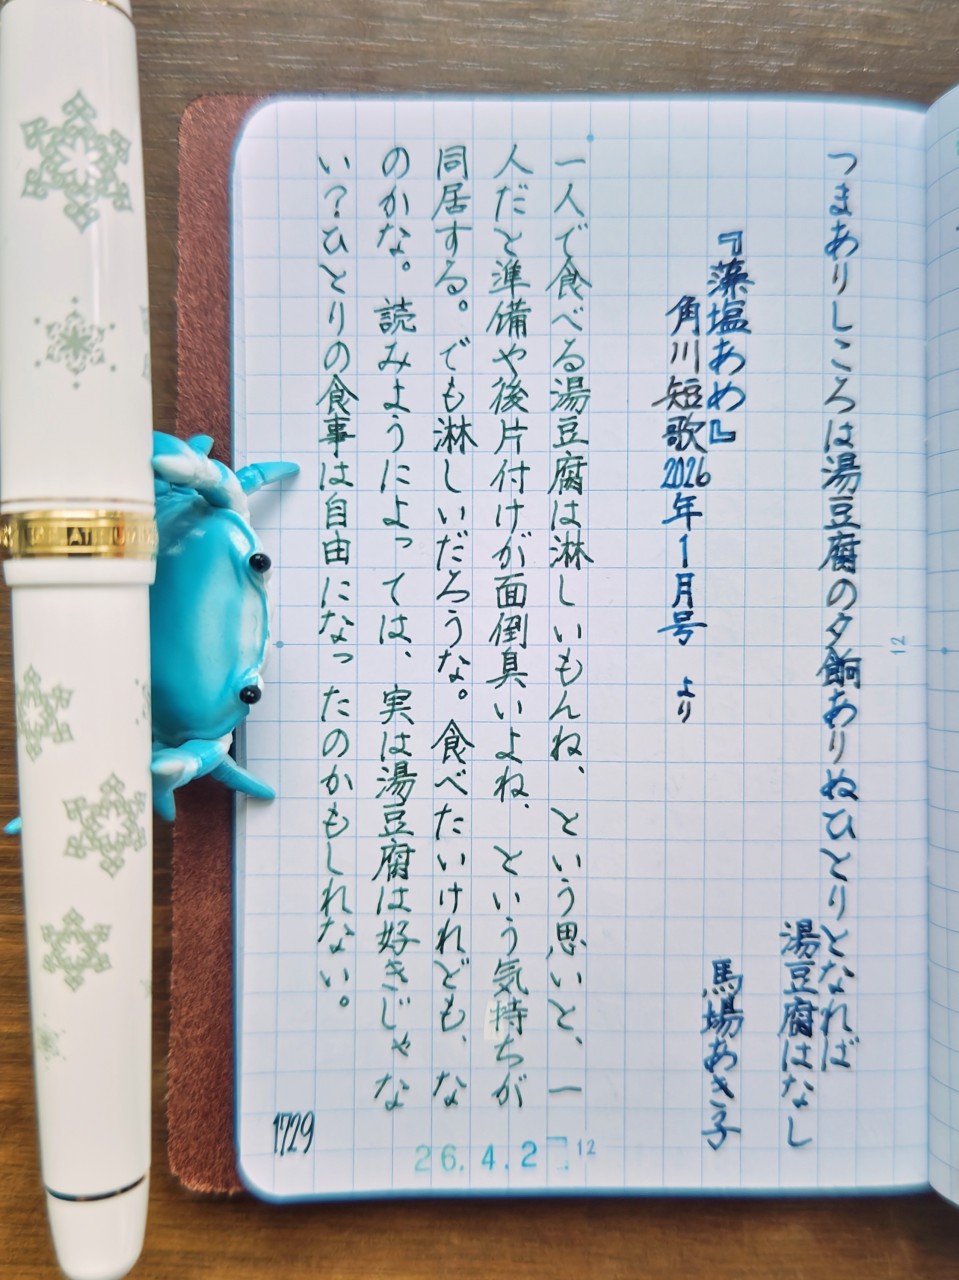 つまありしころは湯豆腐の夕餉ありぬひとりとなれば
湯豆腐はなし
馬場あき子
『藻塩あめ』
角川短歌2026年1月号 より
一人で食べる湯豆腐は淋しいもんね、という思いと、一
人だと準備や後片付けが面倒臭いよね、という気持ちが
同居する。でも淋しいだろうな。食べたいけれども、な
のかな。読みようによっては、実は湯豆腐は好きじゃな
い?ひとりの食事は自由になったのかもしれない。
1729
26.4.2
12
12